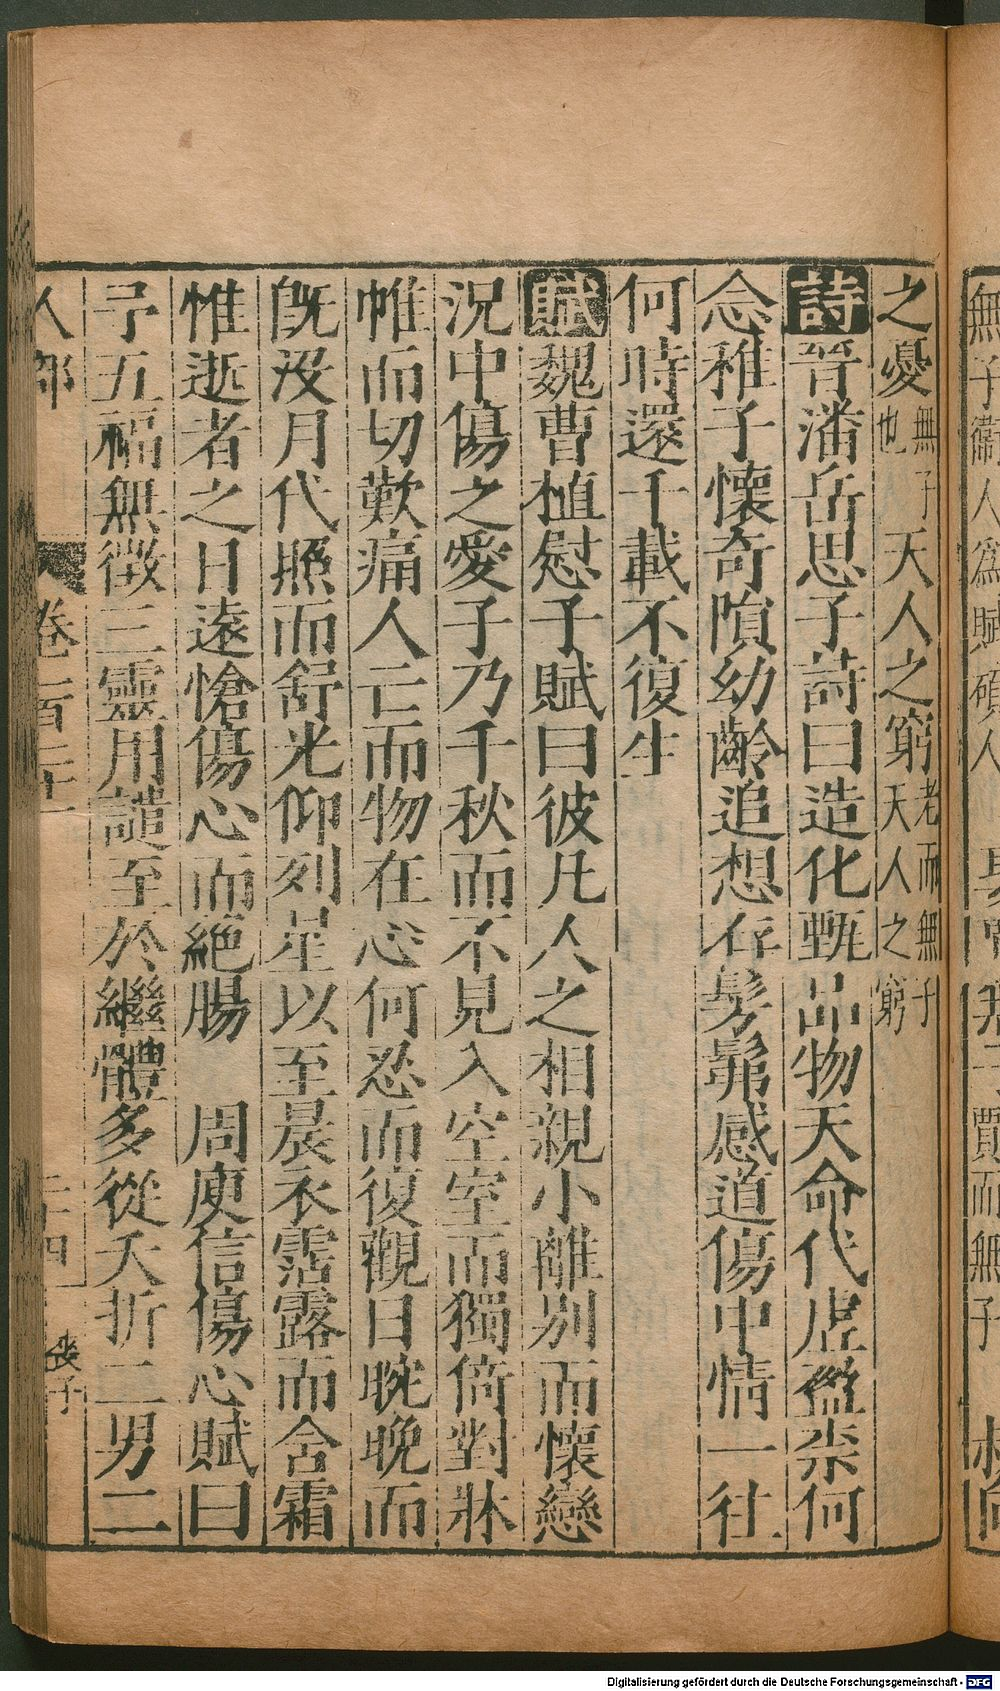 無子衛人為賦碩人 賈而無子 叔向
之憂無子也天人之窮老而無子天人之窮
詩晉潘岳思子詩曰造化甄品物天命代虛盈柰何
念稚子懷奇隕幼齡追想存髣髴感道傷中情一往
何時還千載不復生
賦魏曹植慰子賦曰彼凡人之相親小離別而懷戀
況中傷之愛子乃千秋而不見入空室而獨倚對牀
帷而切歎痛人亡而物在心何忍而復觀日晼晚而
旣沒月代照而舒光仰列星以至晨衣霑露而含霜
惟逝者之日遠愴傷心而絕腸 周庾信傷心賦曰
予五福無徵三靈用譴至於繼體多從夭折二男二
人部 卷 二十四 喪子
Digitalisierung gefördert durch die Deutsche Forschungsgemeinschaft - DFG